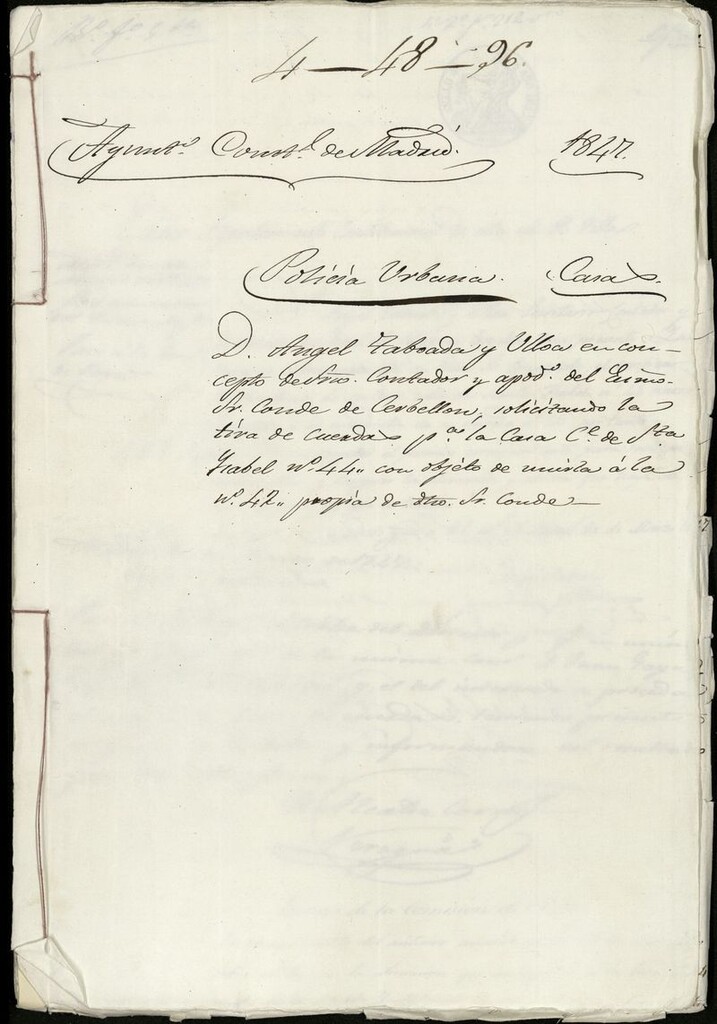 4-48-96.
Ayunt.º Const.l de Madrid. 1847.
Policía Urbana. Casas.
D. Angel Taboada y Ulloa en con-
cepto de Contador y apod.º del Exmo.
Sr. Conde de Cerbellon, solicitando la
tira de cuerdas p.ª la Casa C.e de Sta
Ysabel nº. 44,, con objéto de unirla á la
nº. 42,, propia de dho. Sr. Conde